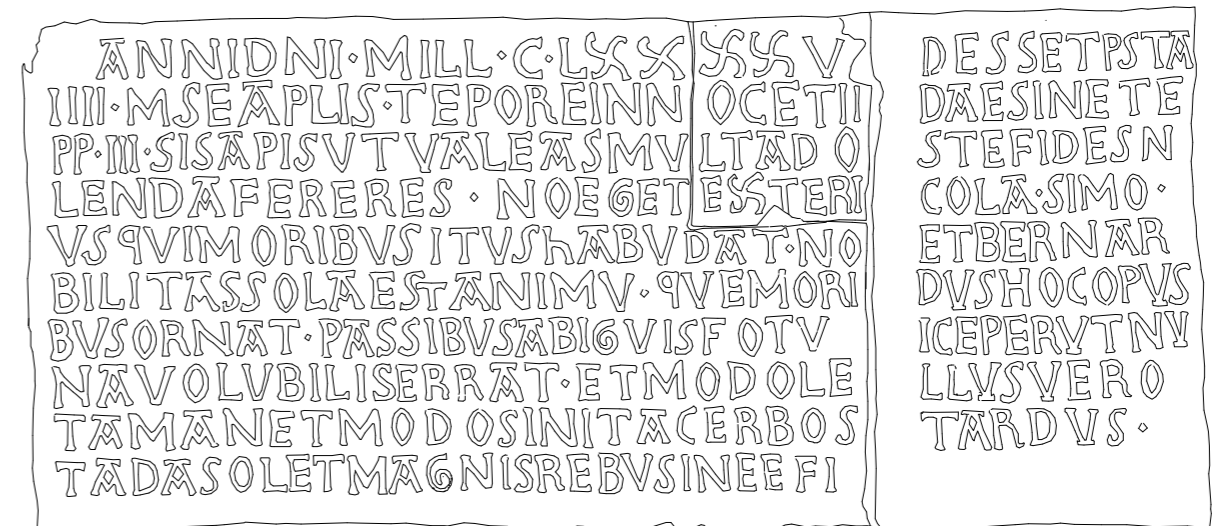 ANNIDNI·MILL·C·LXXXXV
IIII·MSEAPLIS·TEPOREINNOCETII
PP·III·SISAPISVTVALEASMVLTADO
LENDAFERERES·NOEGETEXTERI
VSQVIMORIBVSITVShABVDAT·NO
BILITASSOLAESTANIMV·QVEMORI
BVSORNAT·PASSIBVSABIGVISFOTV
NAVOLVBILISERRAT·ETMODOLE
TAMANETMODOSINITACERBOS
TADASOLETMAGNISREBVSINEEFI
DESSETPSTA
DAESINETE
STEFIDESN
COLA·SIMO·
ETBERNAR
DVSHOCOPVS
ICEPERVTNV
LLVSVERO
TARDVS·